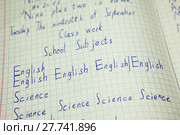 Nine plus two is
Tuesday The nineteenth of September
Class work
School Subjects
English
English English English English
Science
Science Science Science
Science
© 27,741,896